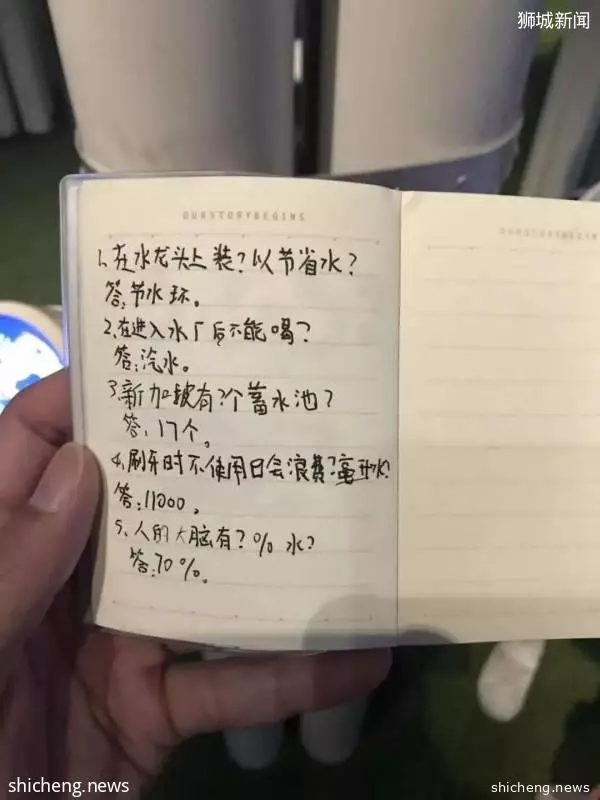 狮城新闻
OURSTORYBEGINS
1、在水龙头上装？以节省水？
答：节水环。
2、在进入水厂后不能喝？
答：汽水。
3、新加坡有？个蓄水池？
答：17个。
4、刷牙时不使用日会浪费？毫升水？
答：11000。
5、人的大脑有？% 水？
答：70%。
shicheng.news
shicheng.news